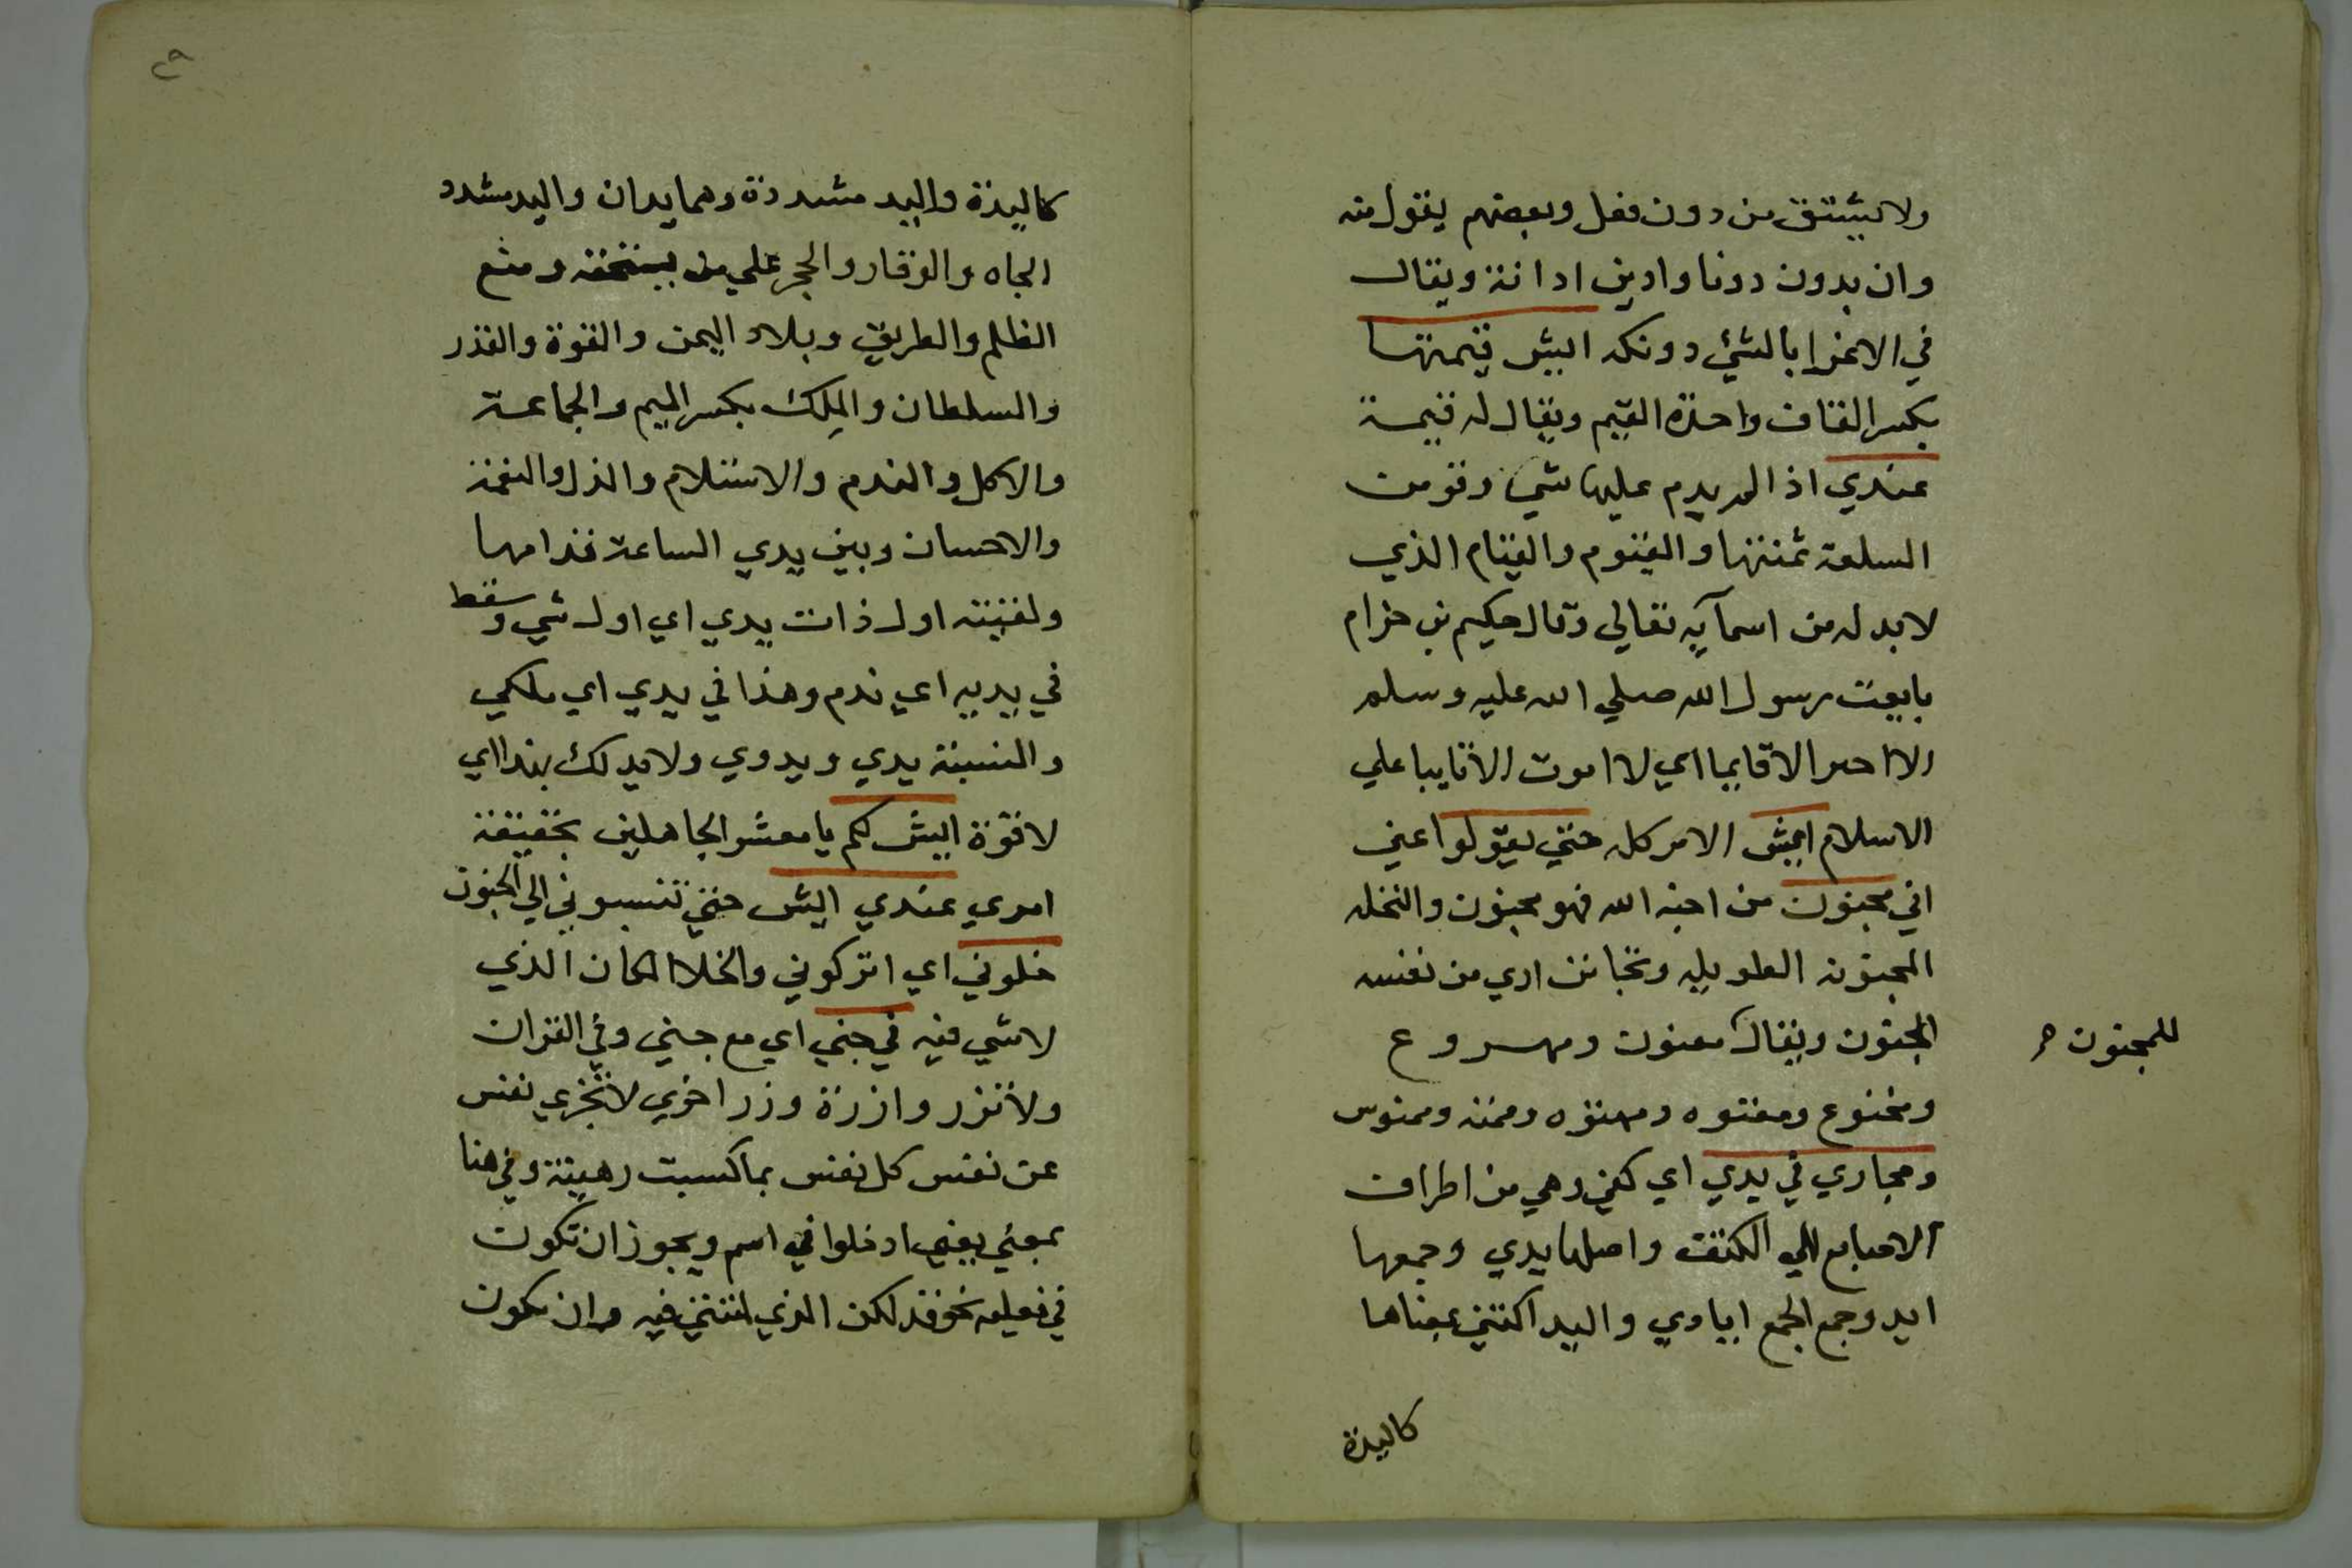 ولا يشتق من دون فعل وبعضهم يقول منه
وان بدون دونا وادين ادانة ويقال
في الاغرا بالشئ دونكه ايش قيمتها
بكسر القاف واحدة القيم ويقال له قيمة
عندي اذا لم يدم عليها شي وقومت
السلعة ثمنتها والقيوم والقيام الذي
لا بد له من اسمآيه تعالي وقال حكيم بن حزام
بايعت رسول الله صلي الله عليه وسلم
الا اخر الا قايما اي لا اموت الا ثابيا علي
الاسلام ايش الامر كله حتي يقولوا عني
اني مجنون من اجنه الله فهو مجنون والنخله
المجنونه الطويله وتجانن اري من نفسه
المجنون ويقال معنون ومهروع
للمجنون
ومخنوع ومعتوه وممتوه وممته وممنوس
ومجاري في يدي اي كفي وهي من اطراف
الاصابع الي الكتف واصلها يدي وجمعها
ايد وجمع الجمع ايادي واليد اكتفي بمعناها
كاليدة
كاليدة واليد مشددة وهما يدان واليد مشدد
الجاه والوقار والحجر علي من يستحقه ومنع
الظلم والطريق وبلاد اليمن والقوة والقدر
والسلطان والمِلك بكسر الميم والجماعة
والاكل والندم والاستلام والذل والنعمة
والاحسان وبين يدي الساعة قدامها
ولقيته اول ذات يدي اي اول شي وسقط
في يديه اي ندم وهذا في يدي اي ملكي
والنسبة يدي ويدوي ولا يد لك بهذا اي
لا قوة ايش لكم يا معشر الجاهلين بحقيقة
امري عندي ايش حتي تنسبوني الي الجنون
خلوني اي اتركوني والخلا المكان الذي
لا شي فيه في جني اي مع جني وفي القران
ولا تزر وازرة وزر اخري لا تجزي نفس
عن نفس كل نفس بما كسبت رهينة وفي هنا
بمعني يعني ادخلوا في امم ويجوز ان تكون
في تعليله نحو فذلكن الذي لمتنني فيه وان تكون